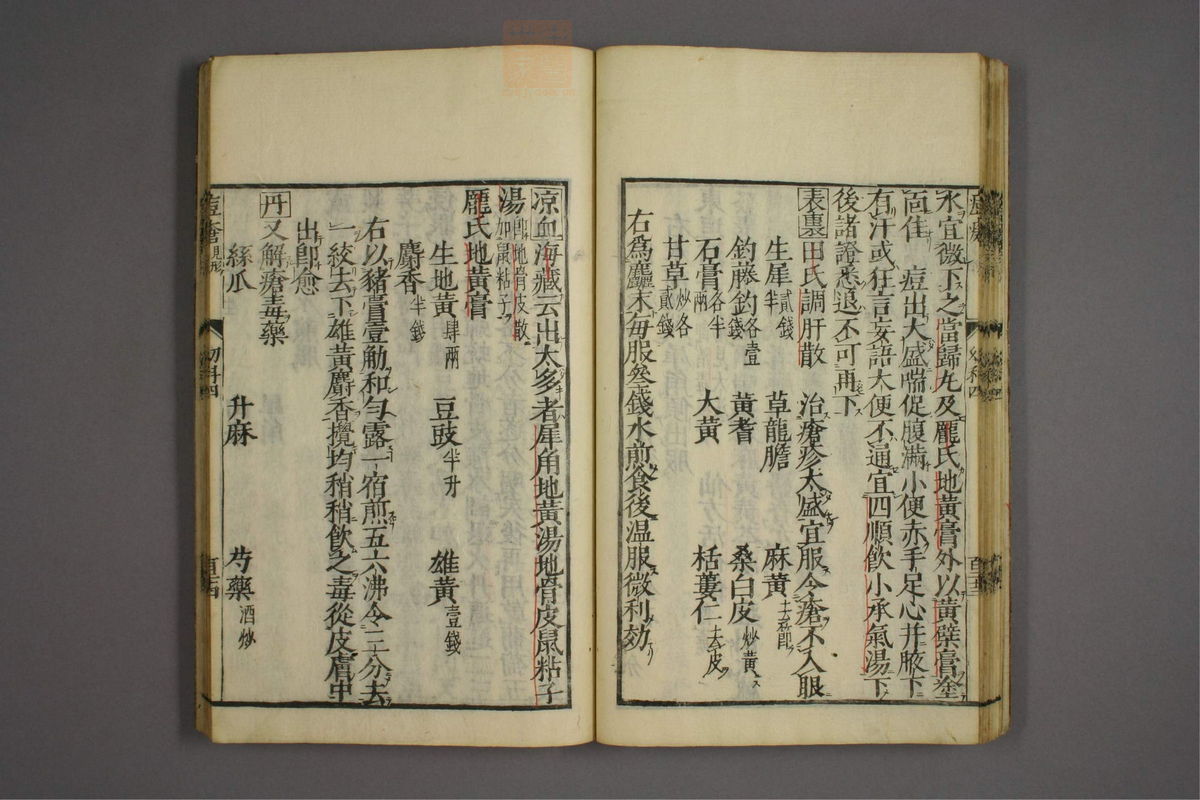 水宜微下之當歸丸及龐氏地黃膏外以黃蘗膏塗
面佳　痘出大盛喘促腹滿小便赤手足心并腋下
有汗或狂言妄語大便不通宜四順飲小承氣湯下
後諸證悉退不可再下
表裏田氏調肝散　治瘡疹太盛宜服令瘡不入眼
生犀半貳錢　草龍膽　麻黃去節
鈎藤鈎各壹錢　黃耆　桑白皮炒黃
石膏各半兩　大黃　栝蔞仁去皮
甘草炒各貳錢
右爲麤末每服叄錢水煎食後温服微利効
凉血海藏云出太多者犀角地黃湯地骨皮鼠粘子
湯卽地骨皮散加鼠粘子
龐氏地黃膏
生地黃肆兩　豆豉半升　雄黃壹錢
麝香半錢
右以豬膏壹觔和勻露一宿煎五六沸令三分去
一絞去下雄黃麝香攪均稍稍飲之毒從皮膚中
出卽愈
丹又解瘡毒藥
絲瓜　升麻　芍藥酒炒
痘瘡見形　幼科四　百十四